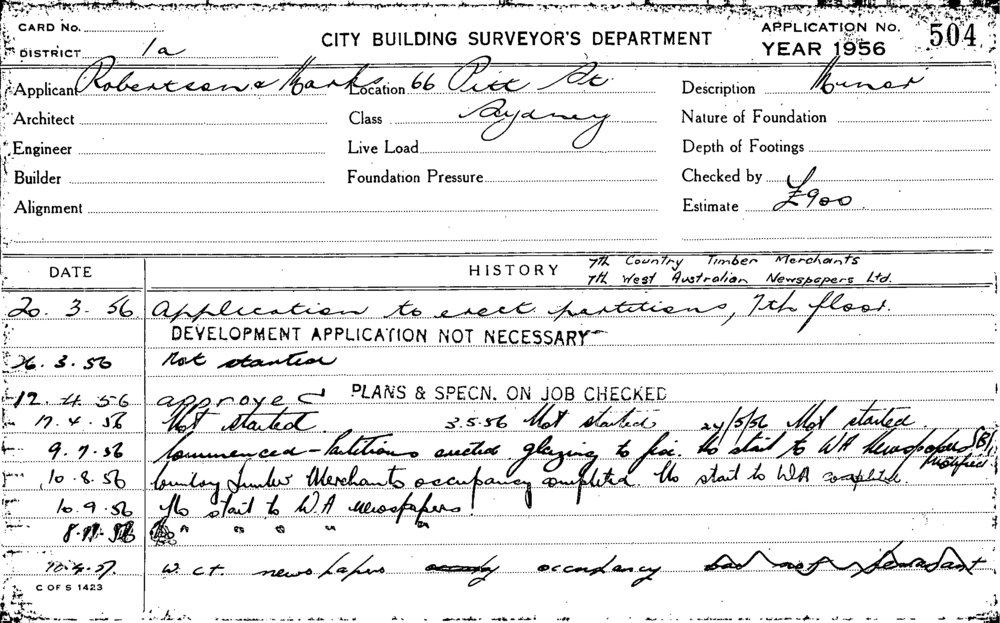 CARD No.
DISTRICT 1a
CITY BUILDING SURVEYOR'S DEPARTMENT
APPLICATION No. 504
YEAR 1956
Applicant Robertson & Marks Location 66 Pitt St Description Minor
Architect Class Sydney Nature of Foundation
Engineer Live Load Depth of Footings
Builder Foundation Pressure Checked by
Alignment Estimate £900
DATE HISTORY 7th Country Timber Merchants
7th West Australian Newspapers Ltd.
20. 3. 56 Application to erect partitions, 7th floor.
DEVELOPMENT APPLICATION NOT NECESSARY
26. 3. 56 Not started
12. 4. 56 approved PLANS & SPECN. ON JOB CHECKED
17. 4. 56 Not started. 3.5.56 Not started 24/5/56 Not started
9. 7. 56 Commenced - Partitions erected glazing to fix. No start to WA Newspapers notified
10. 8. 56 Country Timber Merchants occupancy completed. No start to WA
10. 9. 56 No start to W.A newspapers
8. 11. 56 " " " " "
newspapers occupancy
C OF S 1423